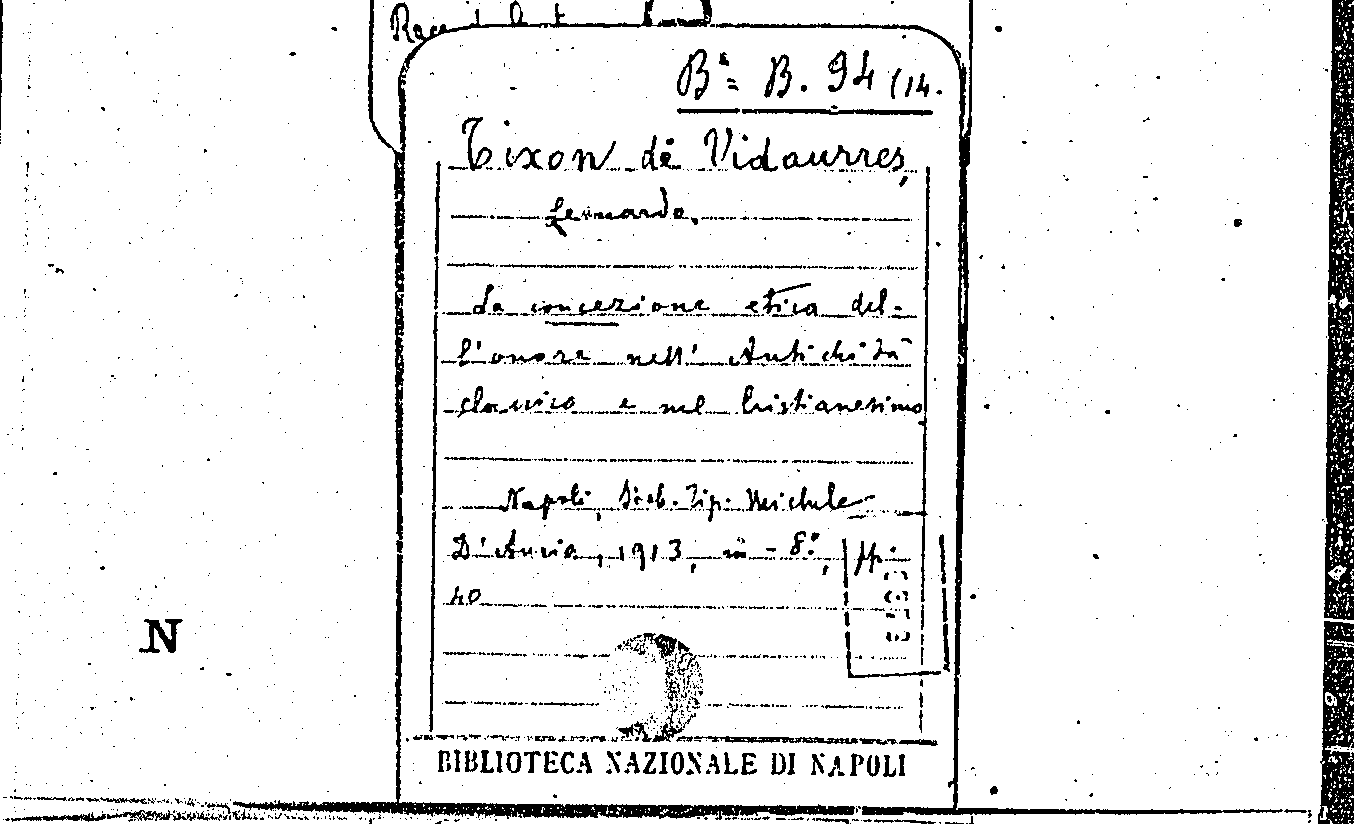 Bª= B. 94 (14.
Tixon de Vidaurres,
Fernando.
La concezione etica del-
l'onore nell'Antichità
classica e nel Cristianesimo
Napoli, Stab. Tip. Michele
D'Auria, 1913, in-8.°, pp.
40
N
BIBLIOTECA NAZIONALE DI NAPOLI